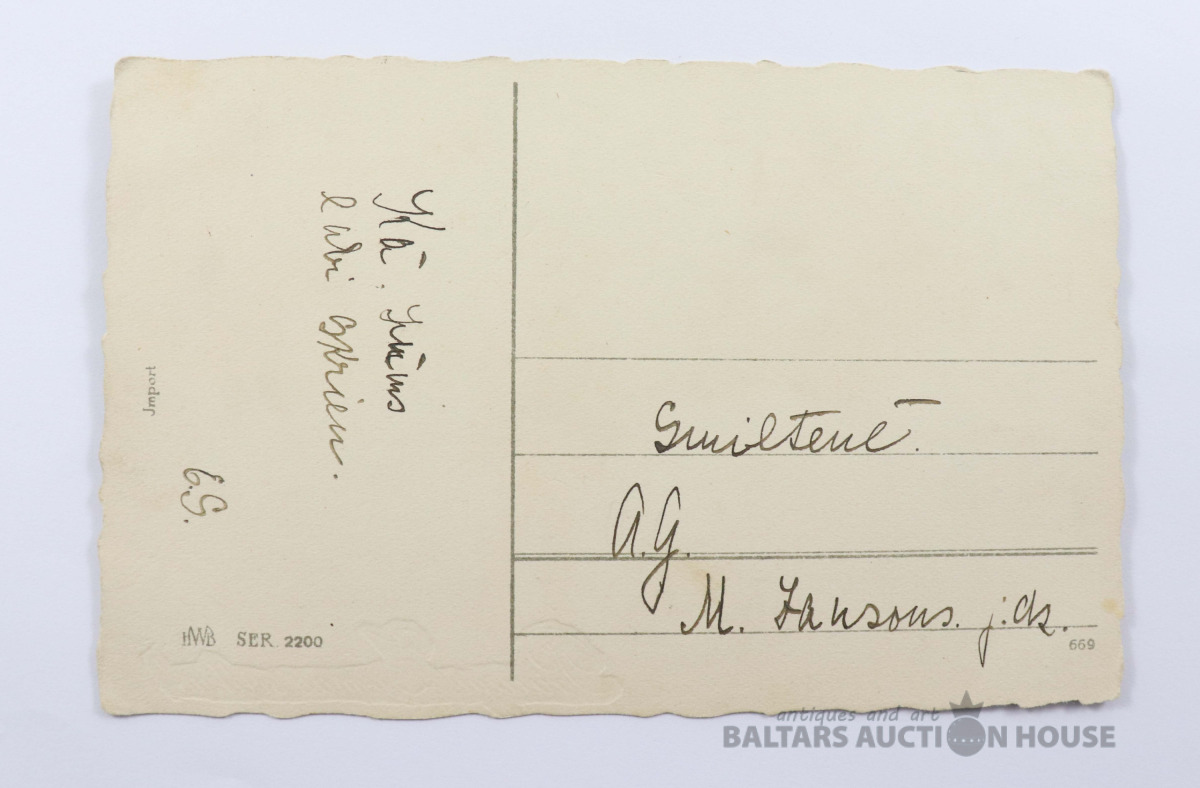 Kā Jums
labi skrien.
E.G.
Jmport
HWB SER. 2200
Smiltenē.
A.G.
M. Jansons. j.dz.
669
antiques and art
BALTARS AUCTION HOUSE